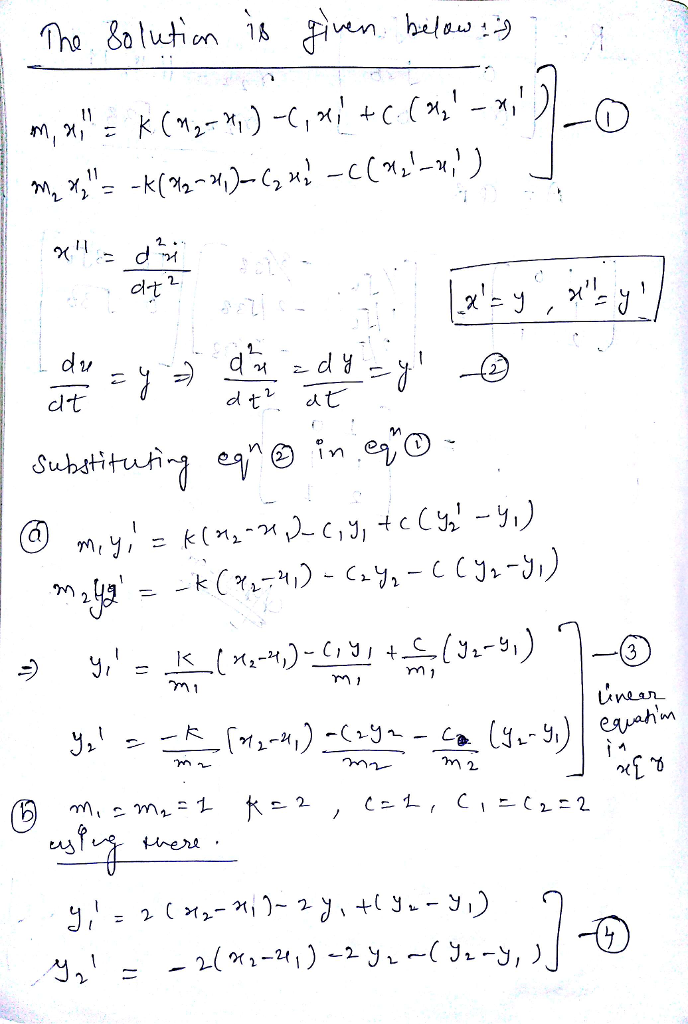 The Solution is given below :⇒
m₁ x₁'' = K (x₂-x₁) - C₁ x₁' + C (x₂' - x₁') ] —①
m₂ x₂'' = -K(x₂-x₁) - C₂ x₂' - C(x₂'-x₁')
x'' = d²x/dt²
x' = y , x'' = y'
dx/dt = y ⇒ d²x/dt² = dy/dt = y' —②
Substituting eqⁿ ② in eqⁿ ① -
ⓐ m₁y₁' = K(x₂-x₁) - C₁y₁ + C(y₂' - y₁)
m₂y₂' = -K(x₂-x₁) - C₂y₂ - C(y₂-y₁)
⇒ y₁' = K/m₁ (x₂-x₁) - C₁y₁/m₁ + C/m₁ (y₂-y₁) ] —③
y₂' = -K/m₂ (x₂-x₁) - C₂y₂/m₂ - C/m₂ (y₂-y₁)
linear
equation
in
x & y
ⓑ m₁ = m₂ = 1 K = 2 , C = 1 , C₁ = C₂ = 2
using there .
y₁' = 2(x₂-x₁) - 2y₁ + (y₂-y₁) ] —④
y₂' = -2(x₂-x₁) - 2y₂ - (y₂-y₁)